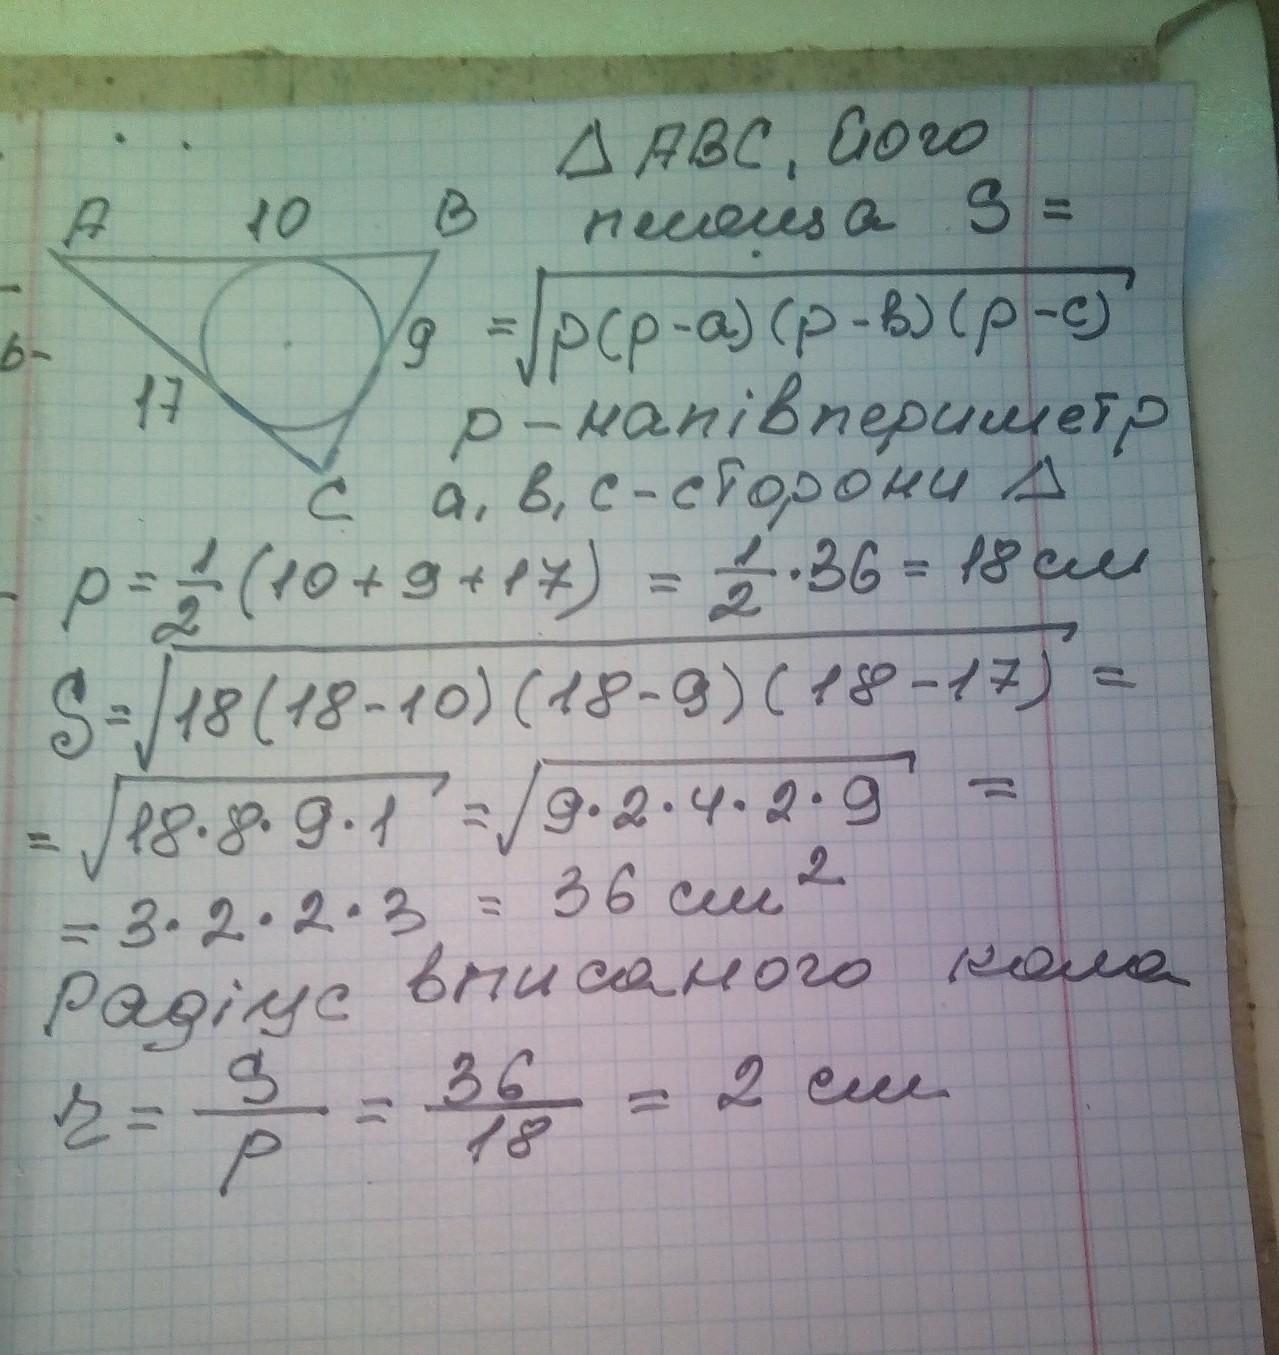 Δ ABC, його
площа S =
A 10 B
= √p(p-a)(p-в)(p-c)
9
17
p – напівпериметр
C
a, в, c - сторони Δ
p = 1/2 (10 + 9 + 17) = 1/2 · 36 = 18 см
S = √18(18-10)(18-9)(18-17) =
= √18·8·9·1 = √9·2·4·2·9 =
= 3·2·2·3 = 36 см²
Радіус вписаного кола
r = S/p = 36/18 = 2 см